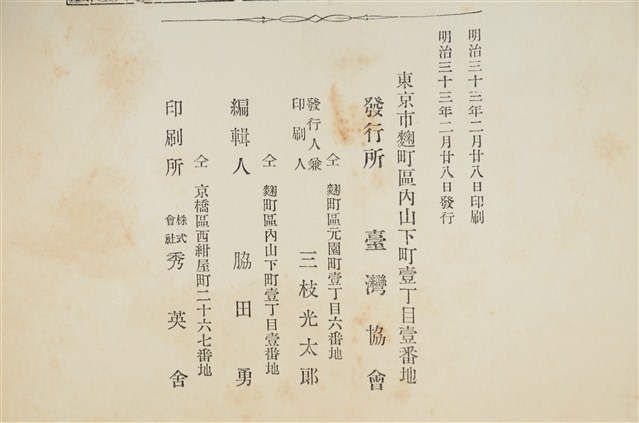 明治三十三年二月廿八日印刷
明治三十三年二月廿八日發行
東京市麴町區內山下町壹丁目壹番地
發行所 臺灣協會
仝 麴町區元園町壹丁目六番地
發行人兼印刷人 三枝光太郎
仝 麴町區內山下町壹丁目壹番地
編輯人 脇田勇
仝 京橋區西紺屋町二十六七番地
印刷所 株式會社 秀英舍